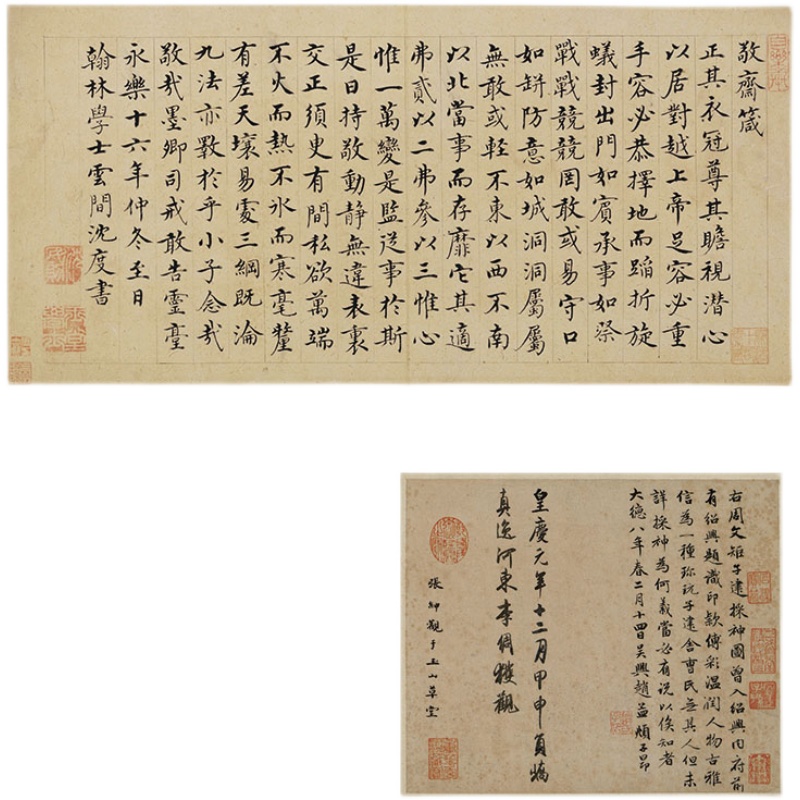 敬齋箴
正其衣冠尊其瞻視潛心
以居對越上帝足容必重
手容必恭擇地而蹈折旋
蟻封出門如賓承事如祭
戰戰兢兢罔敢或易守口
如缾防意如城洞洞屬屬
無敢或輕不東以西不南
以北當事而存靡它其適
弗貳以二弗參以三惟心
惟一萬變是監從事於斯
是曰持敬動靜無違表裏
交正須臾有間私欲萬端
不火而熱不冰而寒毫釐
有差天壤易處三綱既淪
九法亦斁於乎小子念哉
敬哉墨卿司戒敢告靈臺
永樂十六年仲冬至日
翰林學士雲間沈度書
右周文矩子建採神圖曾入紹興內府前
有紹興題識印款傅彩溫潤人物古雅
信為一種珍玩子建舍曹氏無其人但未
詳採神為何義當必有說以俟知者
大德八年春二月十四日吳興趙孟頫子昂
皇慶元年十二月甲申員嶠
真逸河東李倜獲觀
張紳觀于玉山草堂